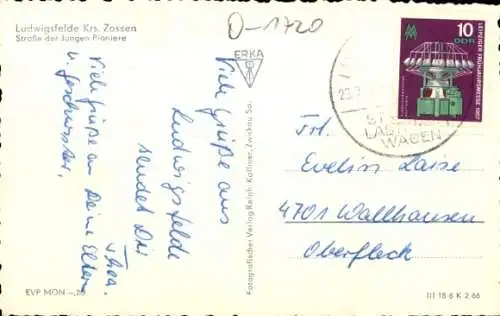 Ludwigsfelde Krs. Zossen
Straße der Jungen Pioniere
D-1720
ERKA
10
DDR
LEIPZIGER FRÜHJAHRSMESSE 1967
WAGEN
Viele Grüße aus
Ludwigsfelde
sendet Dir
Viele Grüße an Deine Eltern
u. Geschwister.
Fotografischer Verlag Ralph Kallmer, Zwickau Sa.
Frl.
Evelin Laise
4701 Wallhausen
Oberfleck
EVP MDN -,20
III 18 6 K 2 66